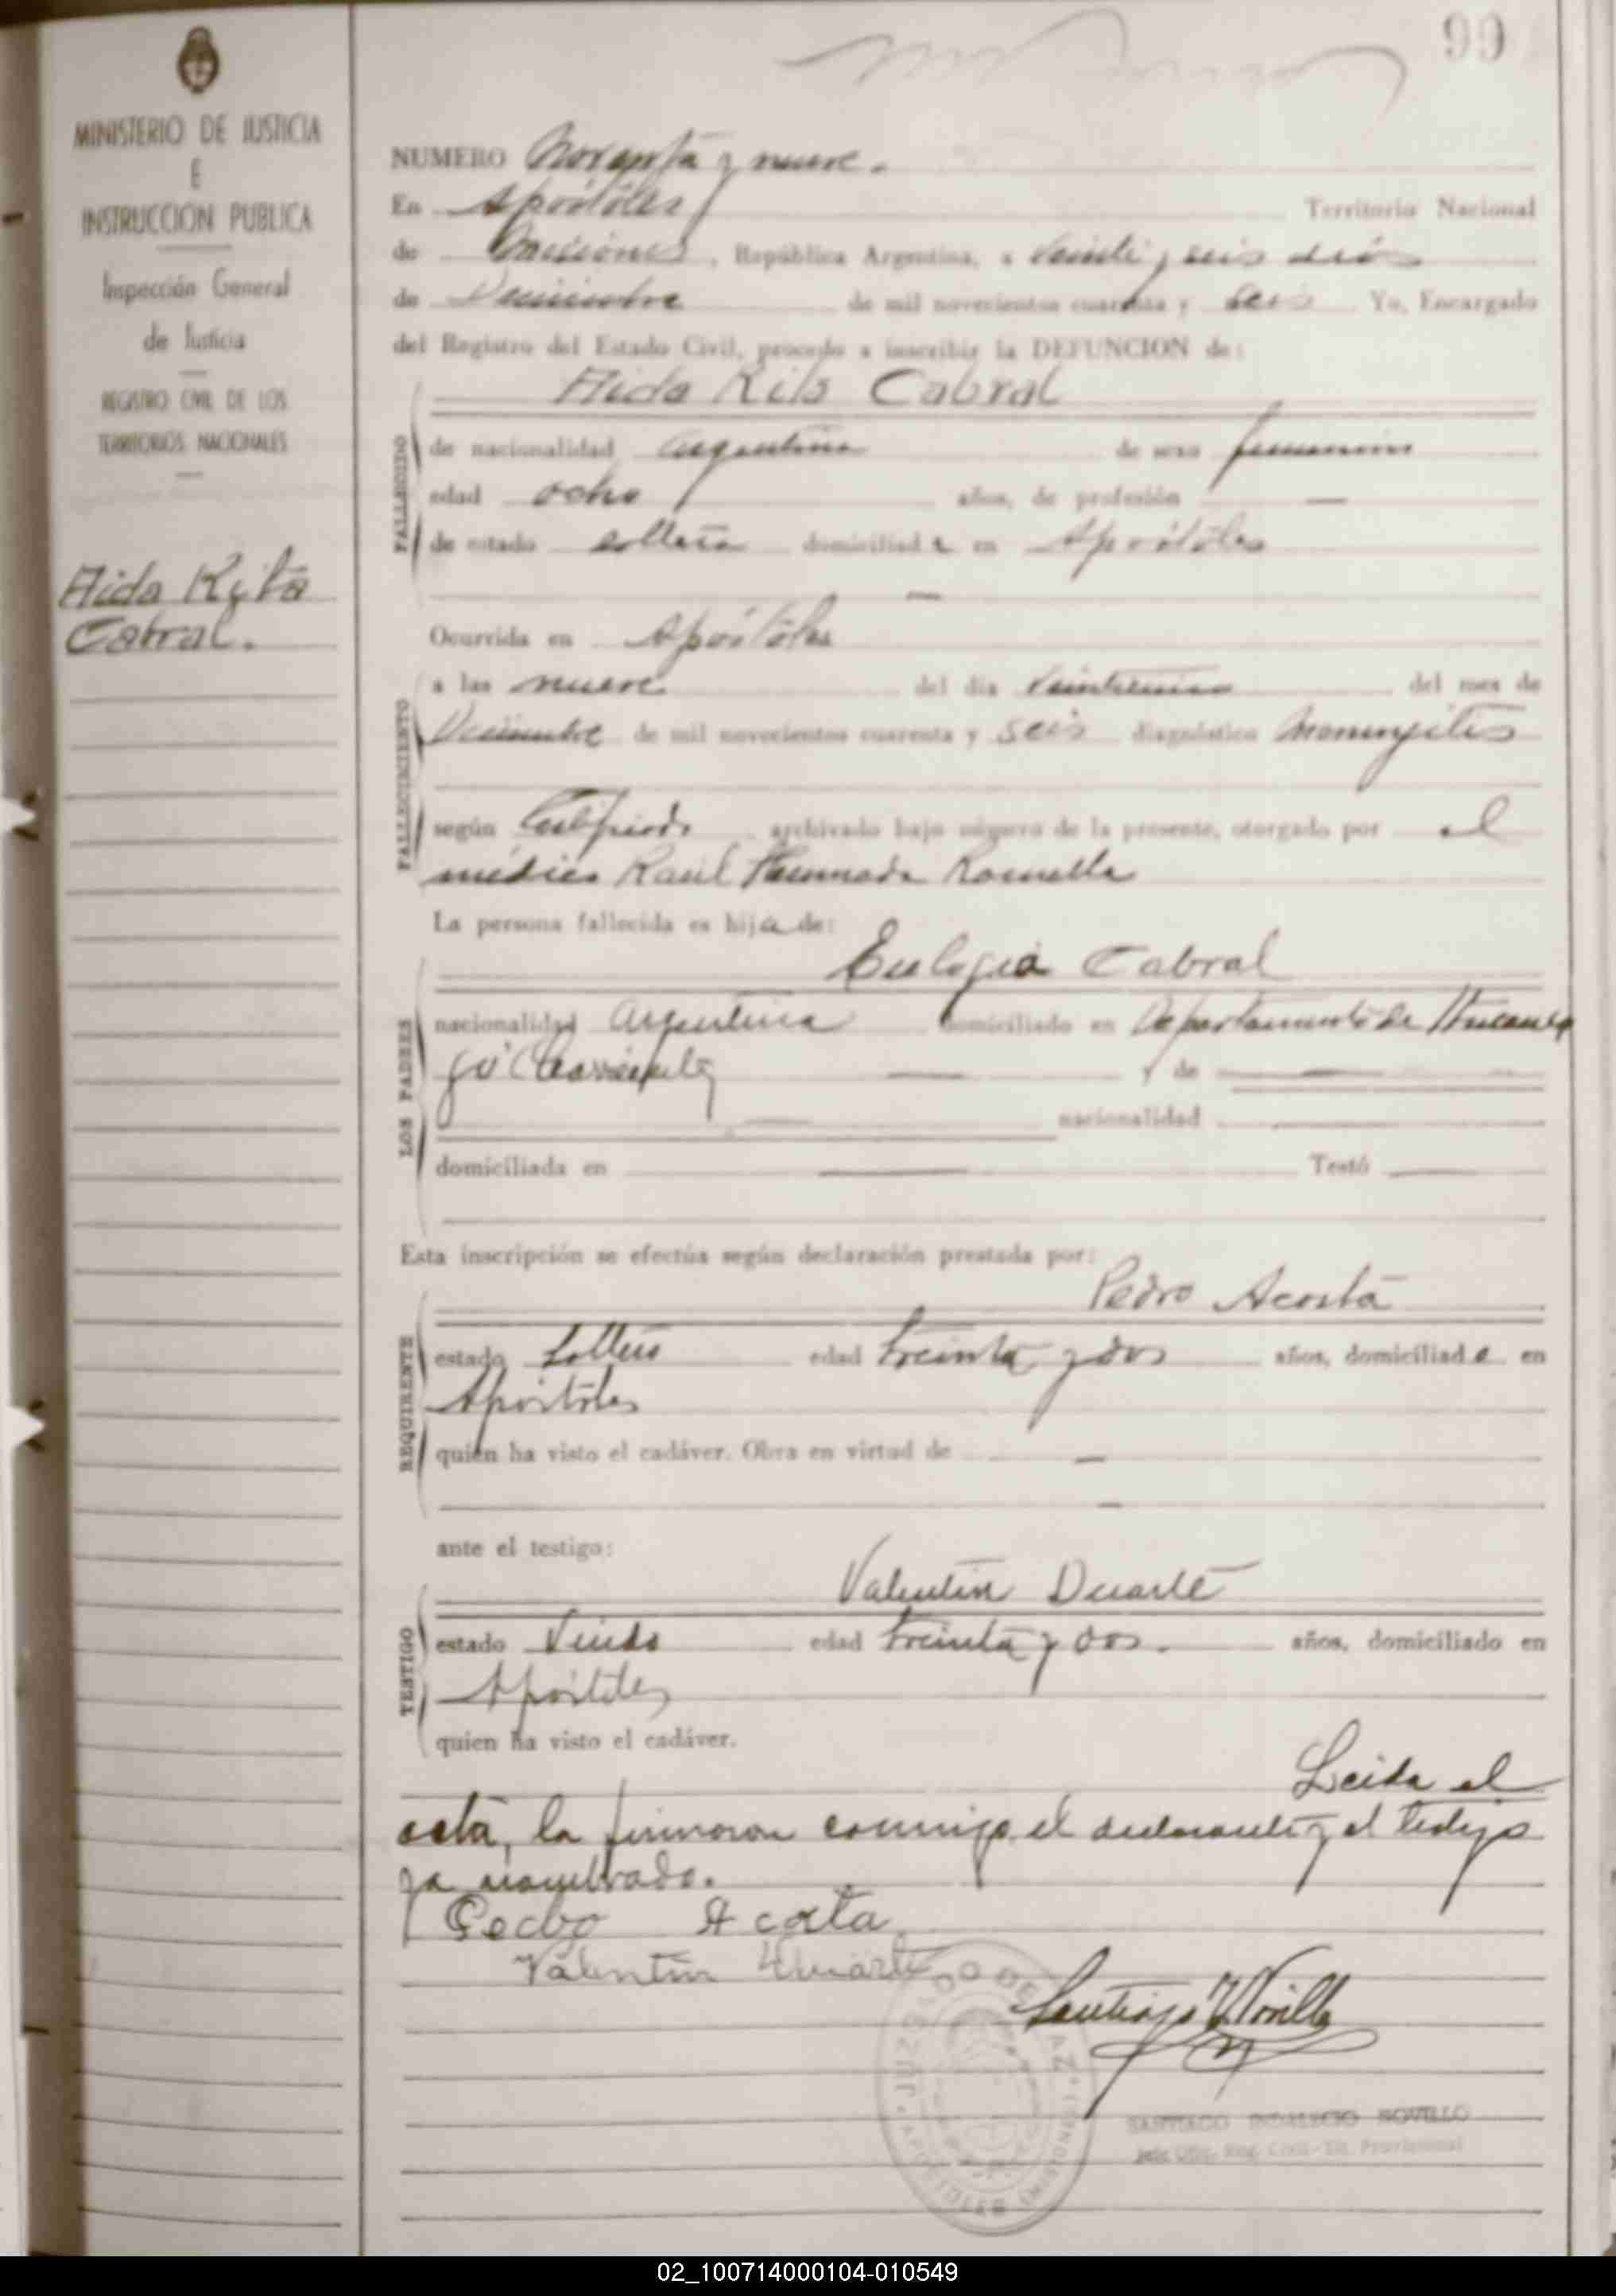 99
MINISTERIO DE JUSTICIA
E
INSTRUCCION PUBLICA
Inspección General
de Justicia
REGISTRO CIVIL DE LOS
TERRITORIOS NACIONALES
Aida Rita
Cabral.
NUMERO Noventa y nueve.
En Apóstoles Territorio Nacional
de Misiones, República Argentina, a veinte y seis días
de Diciembre de mil novecientos cuarenta y seis Yo, Encargado
del Registro del Estado Civil, procedo a inscribir la DEFUNCION de:
Aida Rita Cabral
FALLECIDO
de nacionalidad argentina de sexo femenino
edad ocho años, de profesión —
de estado soltera domiciliada en Apóstoles
—
Ocurrida en Apóstoles
FALLECIMIENTO
a las nueve del día del mes de
Diciembre de mil novecientos cuarenta y seis diagnóstico Meningitis
según Certificado archivado bajo número de la presente, otorgado por el
médico Raúl
La persona fallecida es hija de:
Eulogia Cabral
LOS PADRES
nacionalidad Argentina domiciliado en Departamento de
Corrientes — y de —
— nacionalidad
domiciliada en — Testó —
Esta inscripción se efectúa según declaración prestada por:
Pedro Acosta
REQUIRENTE
estado Soltero edad treinta y dos años, domiciliado en
Apóstoles
quien ha visto el cadáver. Obra en virtud de —
—
ante el testigo:
Valentín Duarte
TESTIGO
estado Viudo edad treinta y dos. años, domiciliado en
Apóstoles
quien ha visto el cadáver.
Leida el
acta, la firmaron conmigo el declarante y el testigo
ya nombrado.
Pedro Acosta
Valentín Duarte
Santiago I. Novillo
JUZGADO DE PAZ APOSTOLES (MISIONES)
SANTIAGO INDALECIO NOVILLO
Jefe Ofic. Reg. Civil - Tit. Provisional
02_100714000104-010549